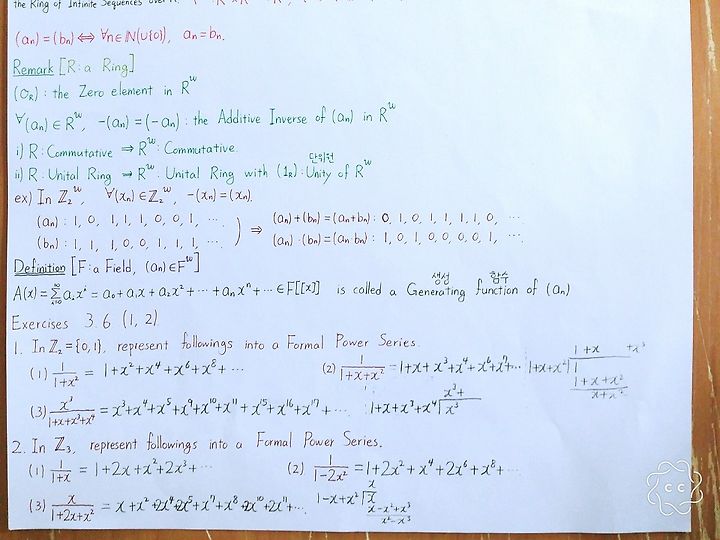 the Ring of Infinite Sequences over R.
(aₙ) = (bₙ) ⇔ ∀n∈ℕ(∪{0}), aₙ = bₙ.
Remark [R: a Ring]
(0_R) : the Zero element in R^w
∀(aₙ) ∈ R^w, -(aₙ) = (-aₙ) : the Additive Inverse of (aₙ) in R^w
i) R : Commutative ⇒ R^w : Commutative.
단위원
ii) R : Unital Ring ⇒ R^w : Unital Ring with (1_R) : Unity of R^w
ex) In ℤ₂^w, ∀(xₙ) ∈ ℤ₂^w, -(xₙ) = (xₙ).
(aₙ) : 1, 0, 1, 1, 1, 0, 0, 1, ⋯ ) ⇒ (aₙ)+(bₙ) = (aₙ+bₙ) : 0, 1, 0, 1, 1, 1, 1, 0, ⋯
(bₙ) : 1, 1, 1, 0, 0, 1, 1, 1, ⋯ (aₙ)·(bₙ) = (aₙ·bₙ) : 1, 0, 1, 0, 0, 0, 0, 1, ⋯
Definition [F : a Field, (aₙ) ∈ F^w]
생성 함수
A(x) = Σ_{i=0}^∞ aᵢxⁱ = a₀ + a₁x + a₂x² + ⋯ + aₙxⁿ + ⋯ ∈ F[[x]] is called a Generating function of (aₙ)
Exercises 3.6 (1, 2)
1. In ℤ₂ = {0, 1}, represent followings into a Formal Power Series.
(1) 1/(1+x²) = 1+x²+x⁴+x⁶+x⁸+⋯ (2) 1/(1+x+x²) = 1+x+x³+x⁴+x⁶+x⁷+⋯
1+x +x³
1+x+x² | 1
1+x+x²
x+x²
(3) x³/(1+x+x³+x⁴) = x³+x⁴+x⁵+x⁹+x¹⁰+x¹¹+x¹⁵+x¹⁶+x¹⁷+⋯
x³+
1+x+x³+x⁴ | x³
2. In ℤ₃, represent followings into a Formal Power Series.
(1) 1/(1+x) = 1+2x+x²+2x³+⋯ (2) 1/(1-2x²) = 1+2x²+x⁴+2x⁶+x⁸+⋯
(3) x/(1+2x+x²) = x+x²+2x⁴+2x⁵+x⁷+x⁸+2x¹⁰+2x¹¹+⋯
x
1-x+x² | x
x-x²+x³
x²-x³
cc